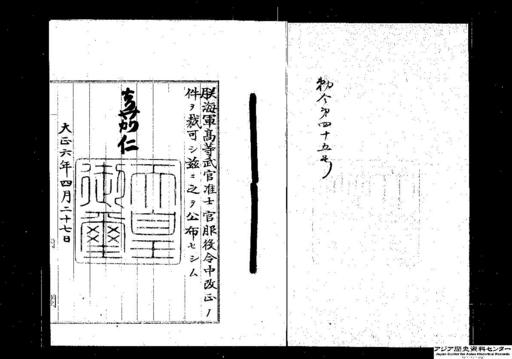 勅令第四十五号
朕海軍高等武官准士官服役令中改正ノ
件ヲ裁可シ茲ニ之ヲ公布セシム
嘉仁
天皇
御璽
大正六年四月二十七日
アジア歴史資料センター
Japan Center for Asian Historical Records